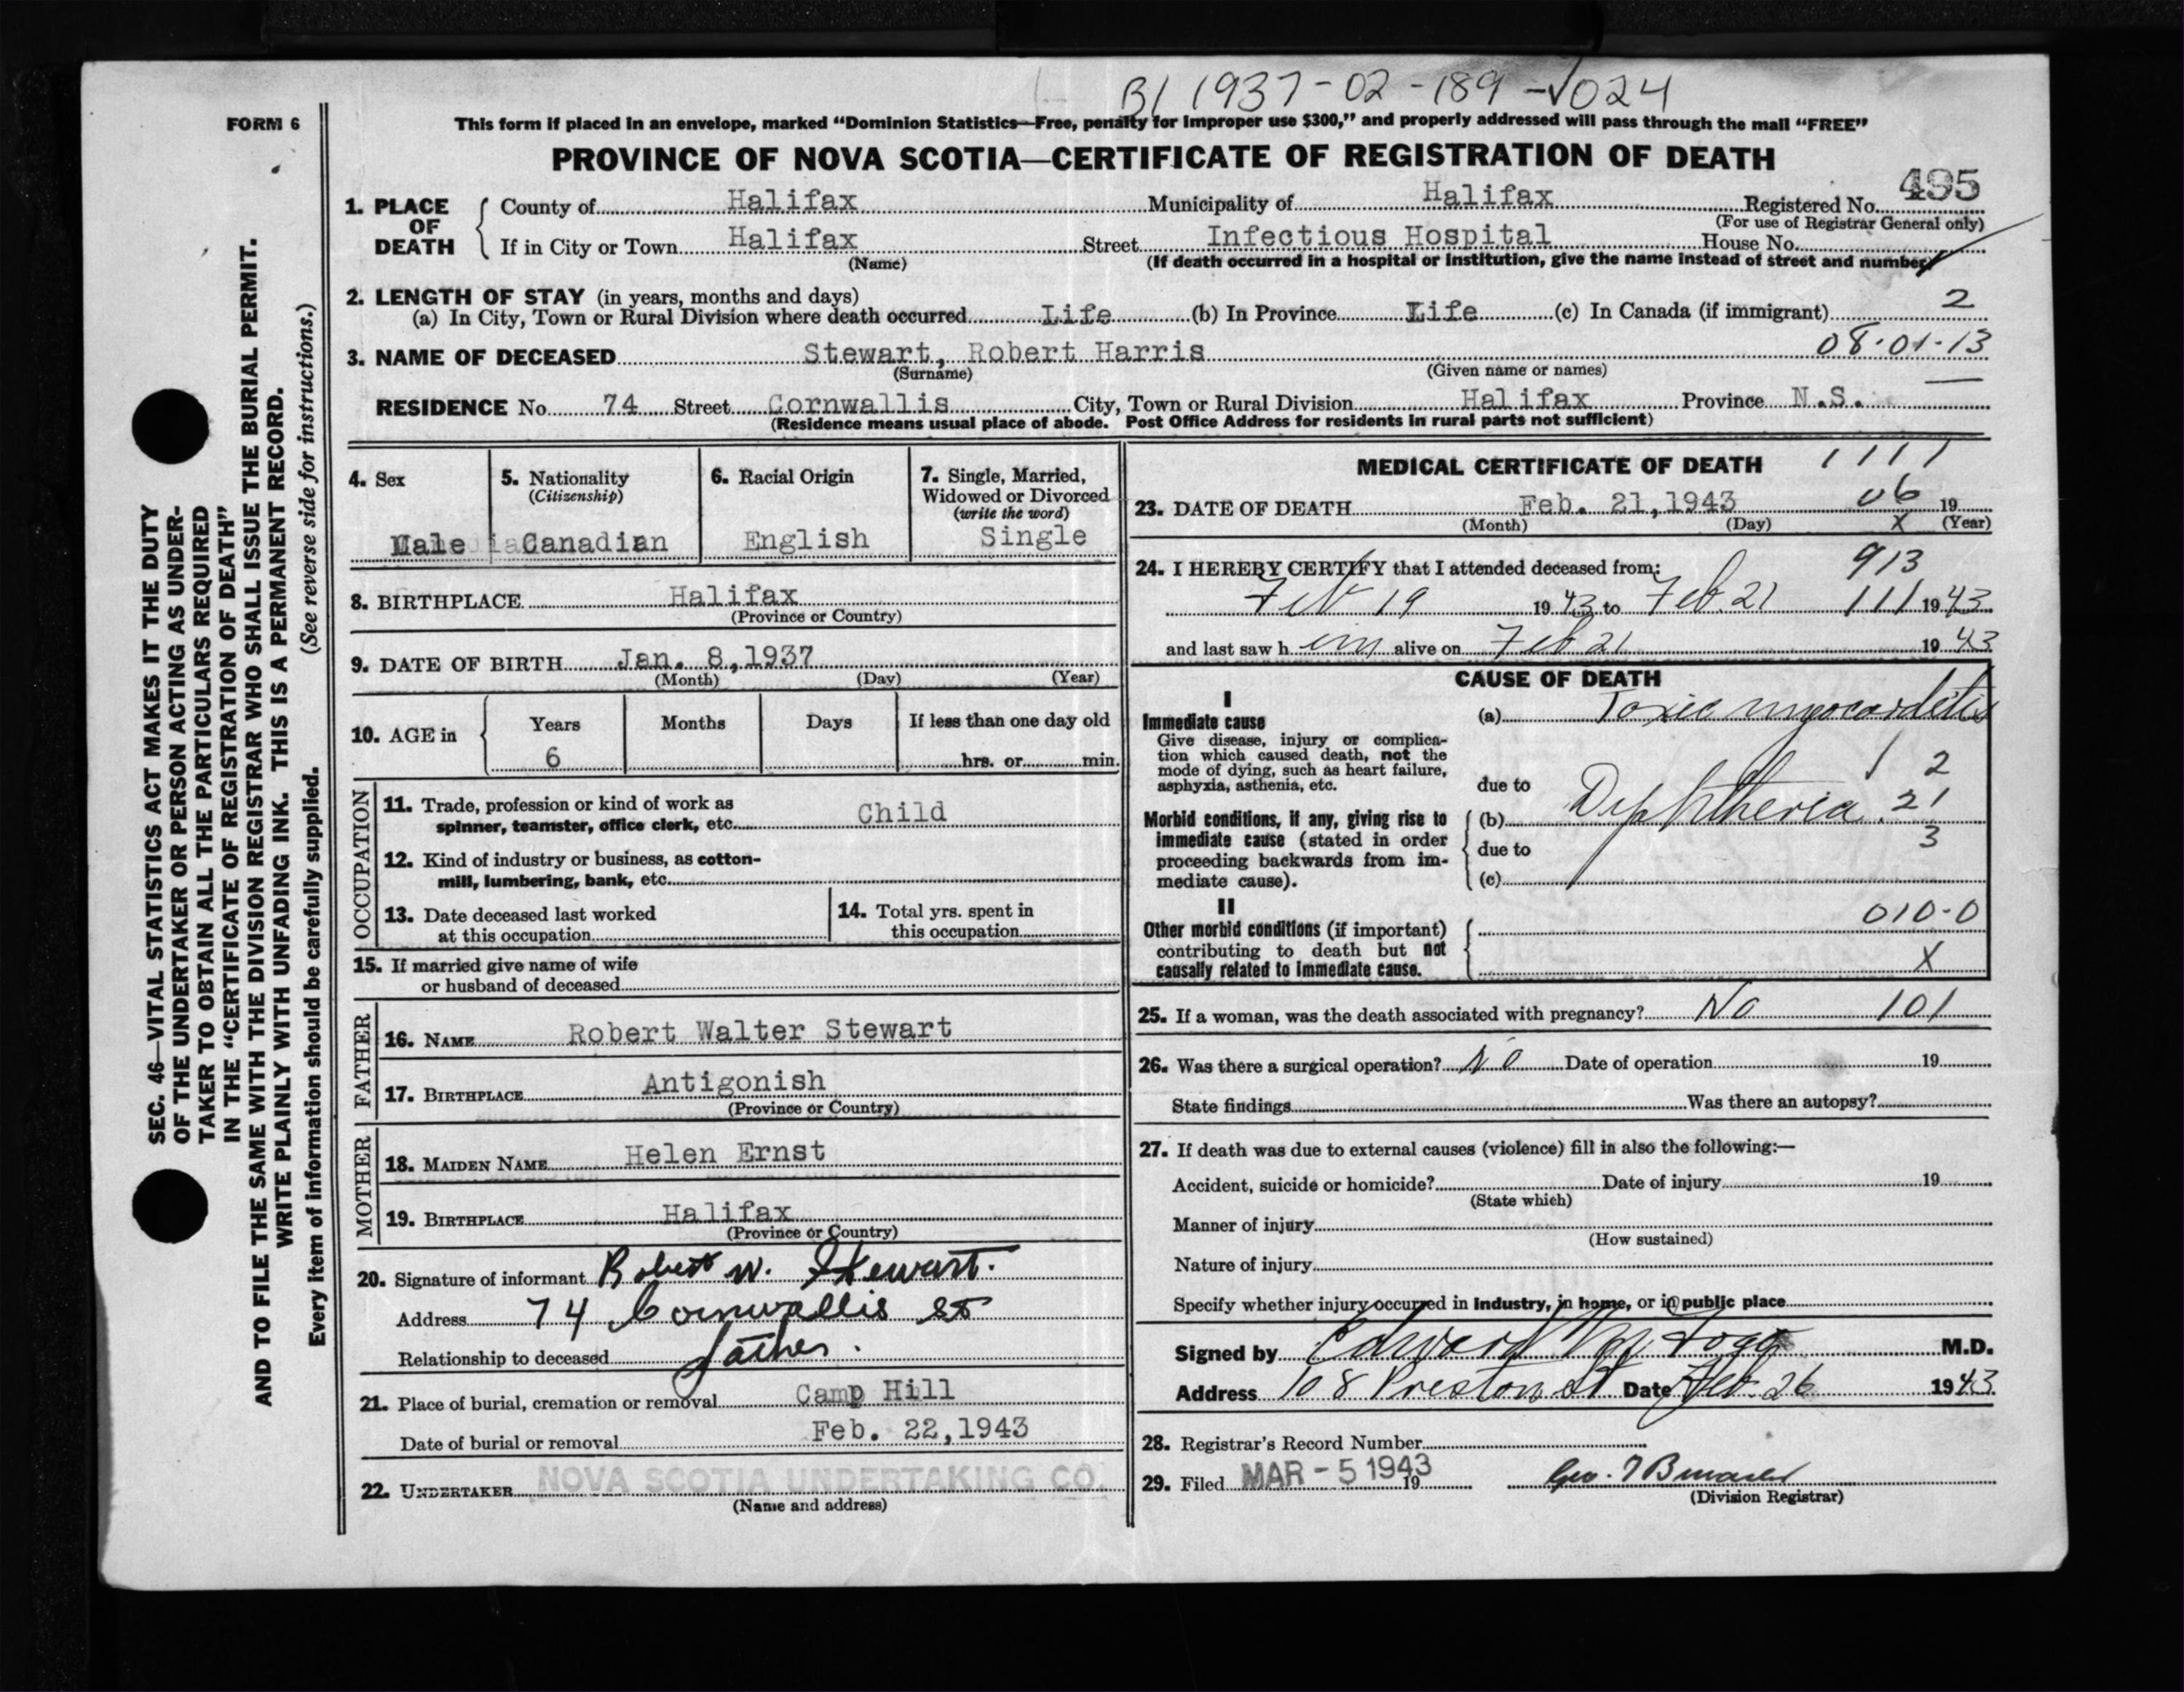 B/ 1937-02-189-√024
FORM 6
This form if placed in an envelope, marked “Dominion Statistics—Free, penalty for improper use $300,” and properly addressed will pass through the mail “FREE”
PROVINCE OF NOVA SCOTIA—CERTIFICATE OF REGISTRATION OF DEATH
495
1. PLACE OF DEATH { County of Halifax Municipality of Halifax Registered No.
(For use of Registrar General only)
If in City or Town Halifax Street Infectious Hospital House No.
(Name) (If death occurred in a hospital or institution, give the name instead of street and number)
2. LENGTH OF STAY (in years, months and days)
(a) In City, Town or Rural Division where death occurred Life (b) In Province Life (c) In Canada (if immigrant) 2
3. NAME OF DECEASED Stewart, Robert Harris 08-01-13
(Surname) (Given name or names)
RESIDENCE No. 74 Street Cornwallis City, Town or Rural Division Halifax Province N.S.
(Residence means usual place of abode. Post Office Address for residents in rural parts not sufficient)
4. Sex
Male
5. Nationality
(Citizenship)
Canadian
6. Racial Origin
English
7. Single, Married,
Widowed or Divorced
(write the word)
Single
8. BIRTHPLACE Halifax
(Province or Country)
9. DATE OF BIRTH Jan. 8,1937
(Month) (Day) (Year)
10. AGE in { Years Months Days If less than one day old
6 hrs. or min.
OCCUPATION
11. Trade, profession or kind of work as
spinner, teamster, office clerk, etc. Child
12. Kind of industry or business, as cotton-
mill, lumbering, bank, etc.
13. Date deceased last worked
at this occupation
14. Total yrs. spent in
this occupation
15. If married give name of wife
or husband of deceased
FATHER
16. NAME Robert Walter Stewart
17. BIRTHPLACE Antigonish
(Province or Country)
MOTHER
18. MAIDEN NAME Helen Ernst
19. BIRTHPLACE Halifax
(Province or Country)
20. Signature of informant Robert W. Stewart.
Address 74 Cornwallis St
Relationship to deceased father.
21. Place of burial, cremation or removal Camp Hill
Date of burial or removal Feb. 22,1943
22. UNDERTAKER NOVA SCOTIA UNDERTAKING CO.
(Name and address)
MEDICAL CERTIFICATE OF DEATH 1111
23. DATE OF DEATH Feb. 21,1943 06 19
(Month) (Day) X (Year)
24. I HEREBY CERTIFY that I attended deceased from: 913
Feb 19 1943 to Feb. 21 111 1943
and last saw h im alive on Feb 21 1943
CAUSE OF DEATH
I
Immediate cause
Give disease, injury or complica-
tion which caused death, not the
mode of dying, such as heart failure,
asphyxia, asthenia, etc.
(a) Toxic myocarditis
1 2
due to
Morbid conditions, if any, giving rise to
immediate cause (stated in order
proceeding backwards from im-
mediate cause).
(b) Diphtheria. 21
due to 3
(c)
II
Other morbid conditions (if important)
contributing to death but not
causally related to immediate cause.
010-0
X
25. If a woman, was the death associated with pregnancy? No 101
26. Was there a surgical operation? No Date of operation 19
State findings Was there an autopsy?
27. If death was due to external causes (violence) fill in also the following:—
Accident, suicide or homicide? Date of injury 19
(State which)
Manner of injury
(How sustained)
Nature of injury
Specify whether injury occurred in industry, in home, or in public place
Signed by Edward Fogg M.D.
Address 108 Preston St Date Feb. 26 1943
28. Registrar's Record Number
29. Filed MAR - 5 1943 19 Geo.
(Division Registrar)
SEC. 46—VITAL STATISTICS ACT MAKES IT THE DUTY
OF THE UNDERTAKER OR PERSON ACTING AS UNDER-
TAKER TO OBTAIN ALL THE PARTICULARS REQUIRED
IN THE “CERTIFICATE OF REGISTRATION OF DEATH”
AND TO FILE THE SAME WITH THE DIVISION REGISTRAR WHO SHALL ISSUE THE BURIAL PERMIT.
WRITE PLAINLY WITH UNFADING INK. THIS IS A PERMANENT RECORD.
Every item of information should be carefully supplied. (See reverse side for instructions.)